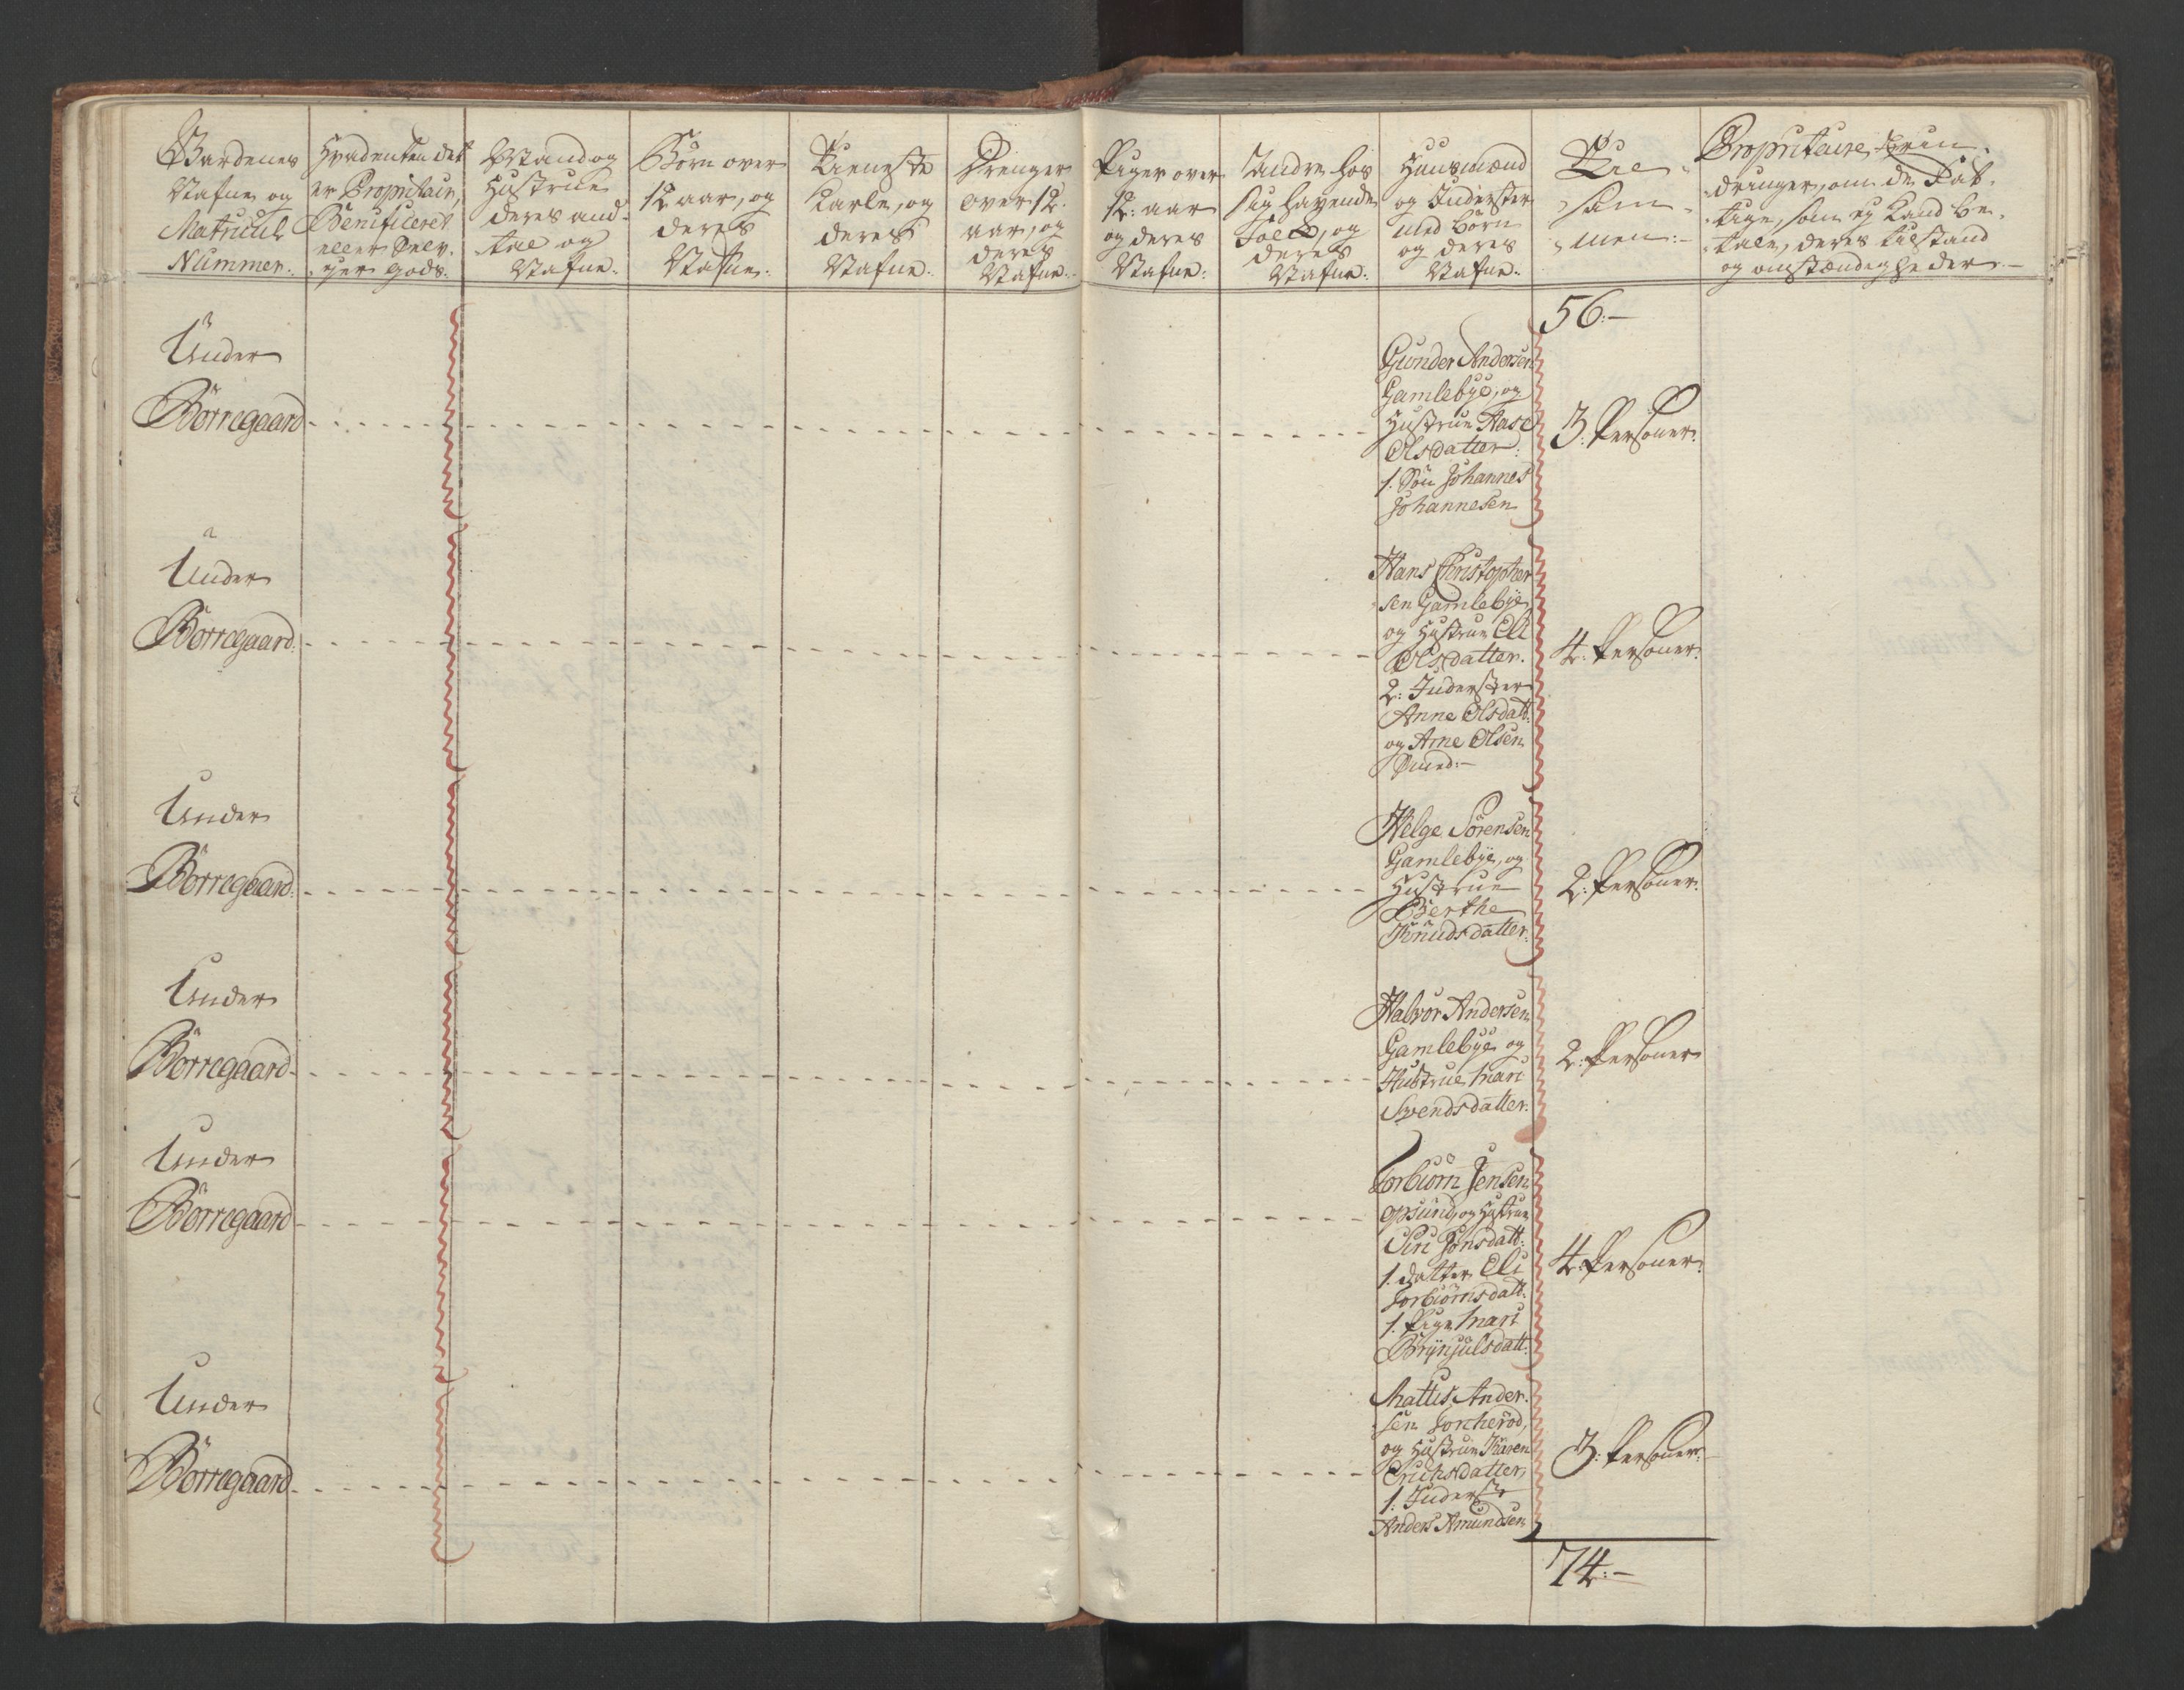 Gardenes
Nafne og
Matricul
Nummer:
Hvadenten det
er Propritair,
Benificeret
eller Selv-
Ejer Gods:
Mand og
Hustrue
deres and-
tal og
Nafne:
Börn over
12 aar, og
deres
Nafne:
Tieneste
Karle, og
deres
Nafne:
Drenger
over 12:
aar, og
deres
Nafne:
Piger over
12: aar
og deres
Nafne:
Andre hos
sig havende
Folck, og
deres
Nafne:
Huusmænd
og Inderster
med Börn
og deres
Nafne:
Til-
sam-
men:-
Propritairernes Erin-
dringer, om de Fat-
tige, som ej kand be-
tale, deres tilstand
og omstændigheder.-
56:-
Under
Börregaard
Gunder Andersen
Gamlebye, og
Hustrue Aase
Olsdatter:
1. Sön Johannes
Johannesen
3: Personer:
Under
Börregaard:
Hans Christopher
sen Gamlebye,
og Hustrue Eli
Olsdatter.
2: Inderster
Anne Olsdatt:
og Arne Olsen
4: Personer:
Under
Börregaard:
Helge Sörensen
Gamlebye, og
Hustrue
Berthe
Knudsdatter:
2: Personer:
Under
Börregaard
Halvor Andersen
Gamlebye og
Hustrue Mari
Svendsdatter:
2: Personer
Under
Börregaard
Torbiörn Jensen
Opsund, og Hustrue
Siri Jonsdatt:
1. Datter Eli
Torbiörnsdatt:
1. Pige Mari
Brynjulsdatt:
4: Personer:
Under
Börregaard
Mattis Ander-
sen Torcheröd,
og Hustrue Karen
Erichsdatter,
1: Inderste
Anders Amundsen
3: Personer:
74:-